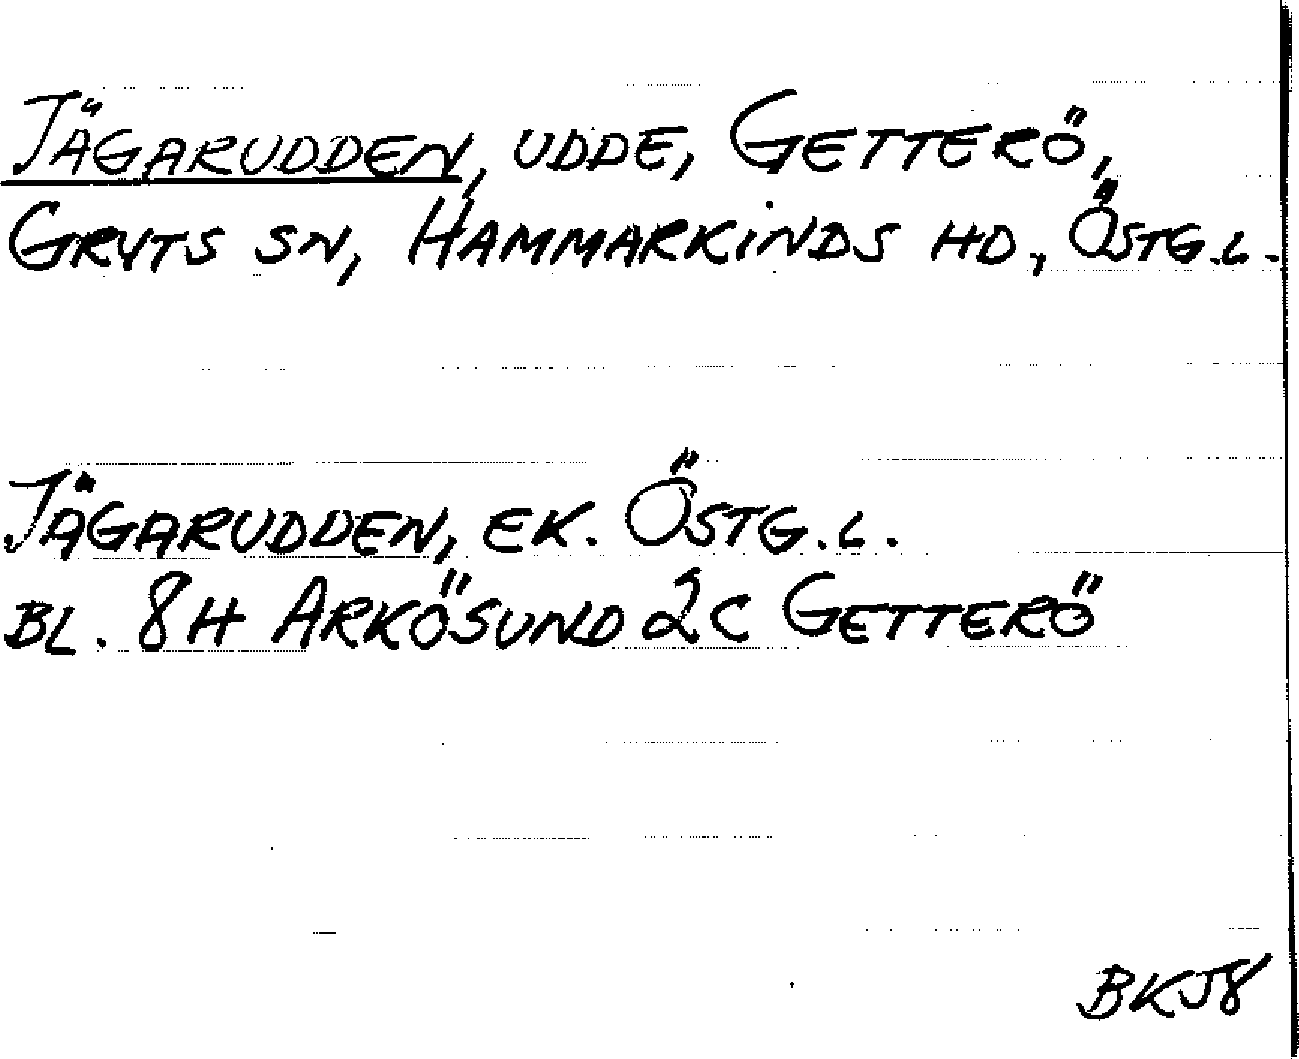 JÄGARUDDEN, UDDE, GETTERÖ,
GRYTS SN, HAMMARKINDS HD., ÖSTG.L.
JÄGARUDDEN, EK. ÖSTG.L.
BL. 8H ARKÖSUND 2C GETTERÖ